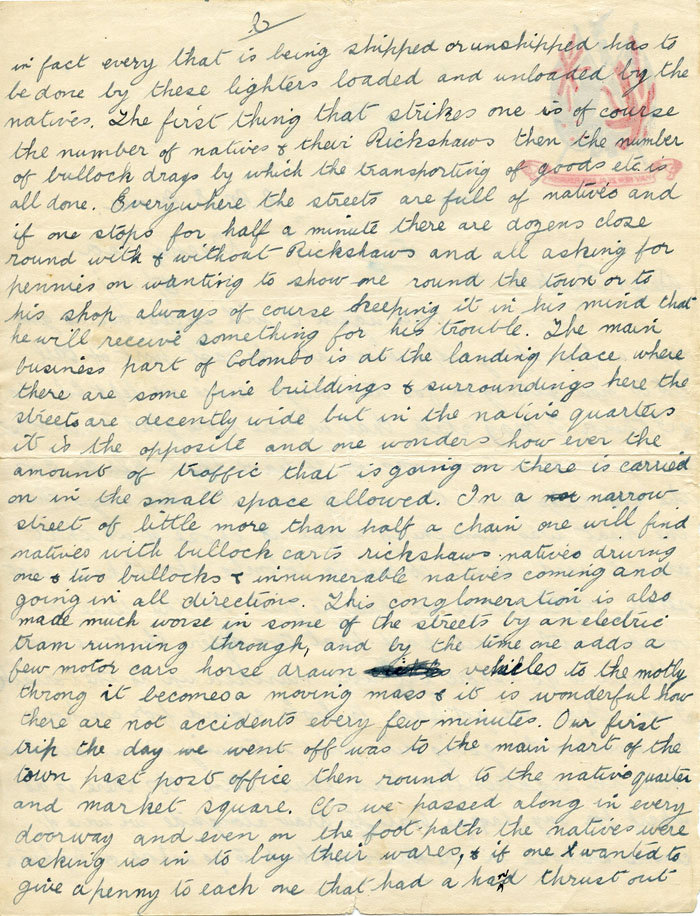 2
in fact every that is being shipped or unshipped has to
be done by these lighters loaded and unloaded by the
natives. The first thing that strikes one is of course
the number of natives & their Rickshaws then the number
of bullock drags by which the transporting of goods etc is
all done. Everywhere the streets are full of natives and
if one stops for half a minute there are dozens close
round with & without Rickshaws and all asking for
pennies or wanting to show one round the town or to
his shop always of course keeping it in his mind that
he will receive something for his trouble. The main
business part of Colombo is at the landing place where
there are some fine buildings & surroundings here the
streets are decently wide but in the native quarters
it is the opposite and one wonders how ever the
amount of traffic that is going on there is carried
on in the small space allowed. In a narrow
street of little more than half a chain one will find
natives with bullock carts rickshaws natives driving
one & two bullocks & innumerable natives coming and
going in all directions. This conglomeration is also
made much worse in some of the streets by an electric
tram running through, and by the time one adds a
few motor cars horse drawn vehicles to the motly
throng it becomes a moving mass & it is wonderful how
there are not accidents every few minutes. Our first
trip the day we went off was to the main part of the
town past post office then round to the native quarter
and market square. As we passed along in every
doorway and even on the foot path the natives were
asking us in to buy their wares, & if one wanted to
give a penny to each one that had a hand thrust out